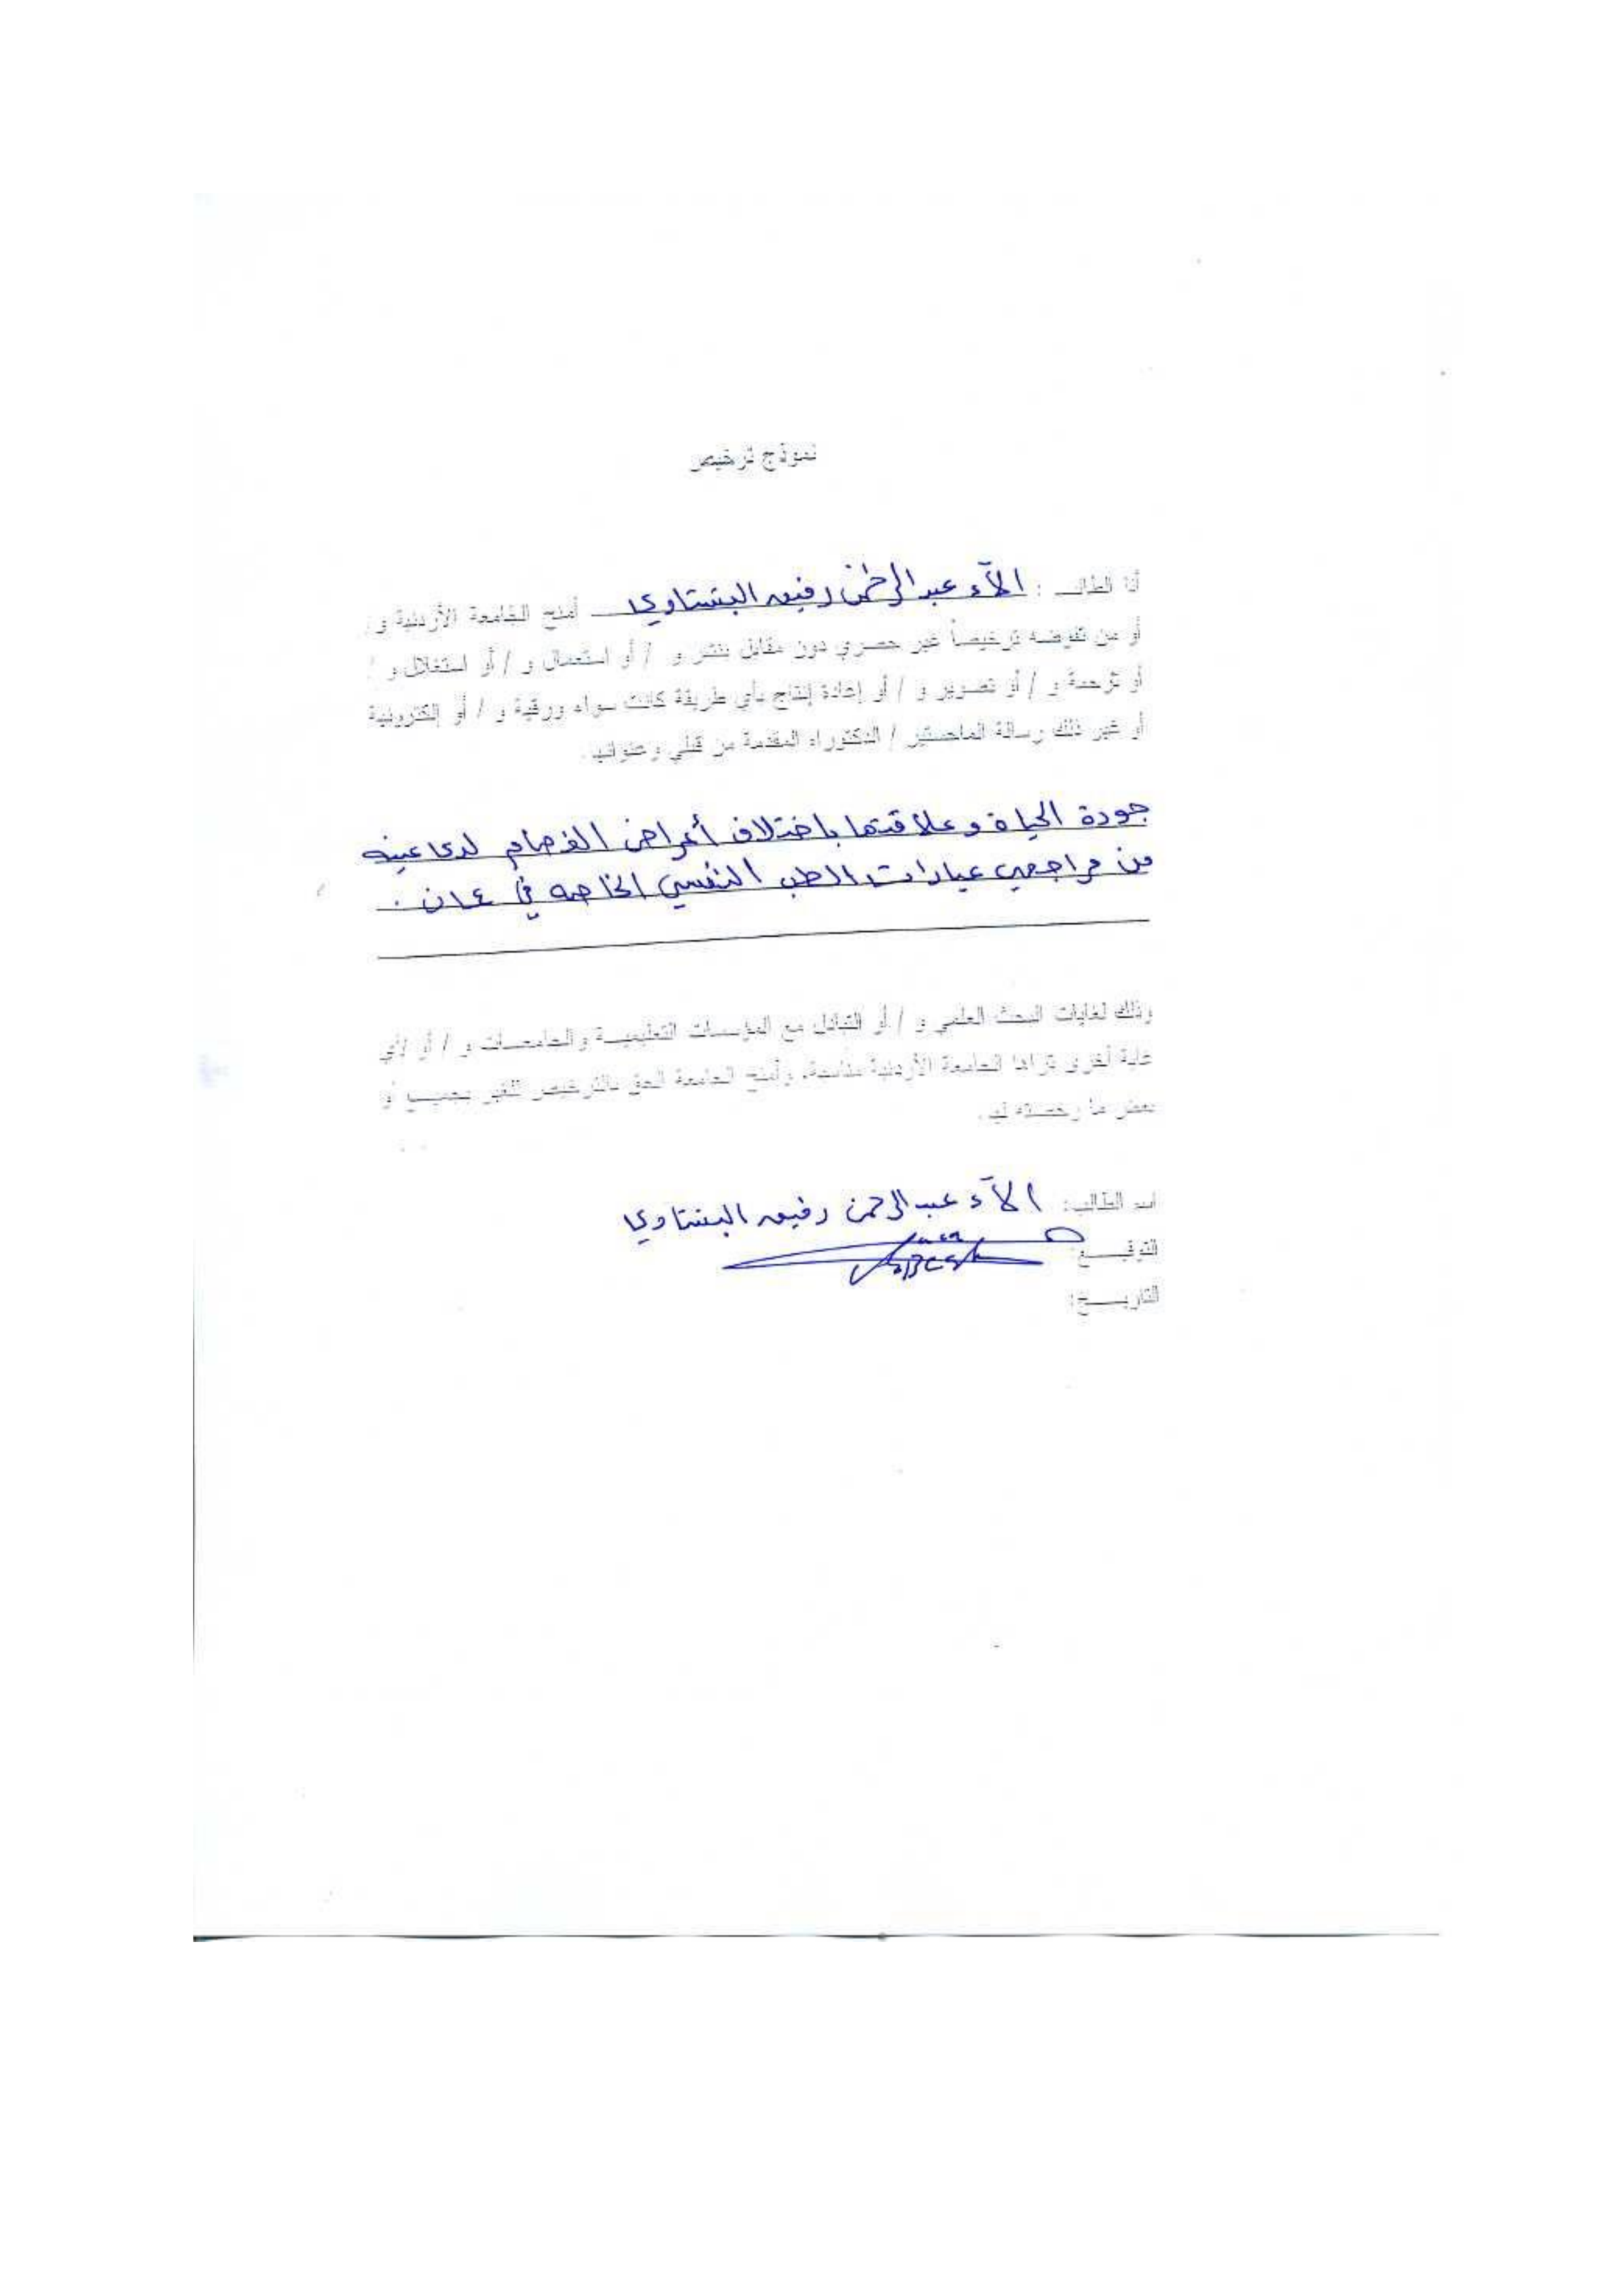 نموذج ترخيص
أنا الطالب : الآء عبد الرحمن رفيق البشتاوي أمنح الجامعة الأردنية و /
أو من تفوضه ترخيصاً غير حصري دون مقابل بنشر و / أو استعمال و / أو استغلال و /
أو ترجمة و / أو تصوير و / أو إعادة إنتاج بأي طريقة كانت سواء ورقية و / أو إلكترونية
أو غير ذلك رسالة الماجستير / الدكتوراه المقدمة من قبلي وعنوانها.
جودة الحياة وعلاقتها باختلاف أعراض الفصام لدى عينه
من مراجعي عيادات الطب النفسي الخاصه في عمان .
وذلك لغايات البحث العلمي و / أو التبادل مع المؤسسات التعليمية والجامعات و / أو لأي
غاية أخرى تراها الجامعة الأردنية مناسبة، وأمنح الجامعة الحق بالترخيص للغير بجميع أو
بعض ما رخصته لها.
اسم الطالب: الآء عبد الرحمن رفيق البشتاوي
التوقيع:
التاريخ: